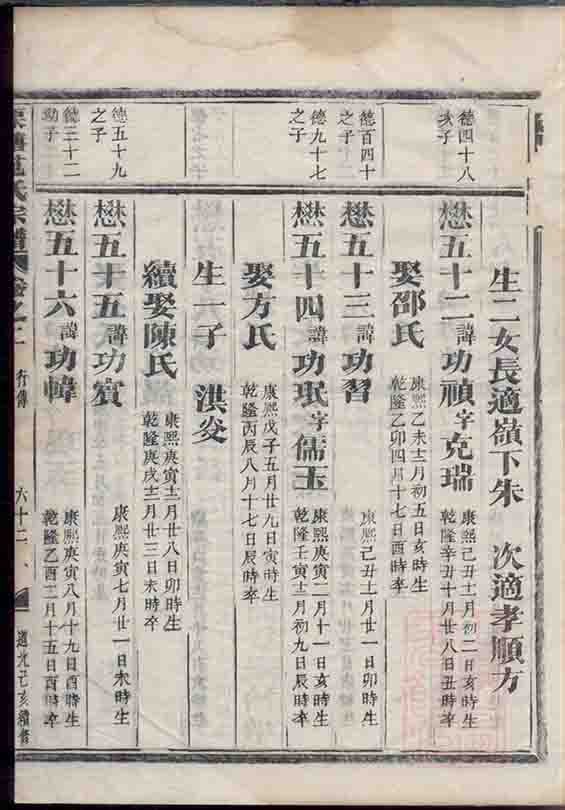 生二女長適嶺下朱 次適孝順方
德四十八
亥子
懋五十二諱功禎字克瑞
康熙己丑十二月初二日亥時生
乾隆辛丑十月廿八日丑時卒
娶邵氏
康熙乙未十二月初五日亥時生
乾隆乙卯四月十七日酉時卒
德百四十
之子
懋五十三諱功習
康熙己丑十二月廿一日卯時生
德九十七
之子
懋五十四諱功珉字儒玉
康熙庚寅二月十一日亥時生
乾隆壬寅十二月初九日辰時卒
娶方氏
康熙戊子五月廿九日寅時生
乾隆丙辰八月十七日辰時卒
生一子 洪焱
續娶陳氏
康熙庚寅十二月廿八日卯時生
乾隆庚戌十二月廿三日未時卒
德五十九
之子
懋五十五諱功賓
康熙庚寅七月廿一日未時生
德三十二
幼子
懋五十六諱功幃
康熙庚寅八月十九日酉時生
乾隆乙酉二月十五日酉時卒
范氏宗譜 卷之二 行傳 六十二 道光己亥續脩